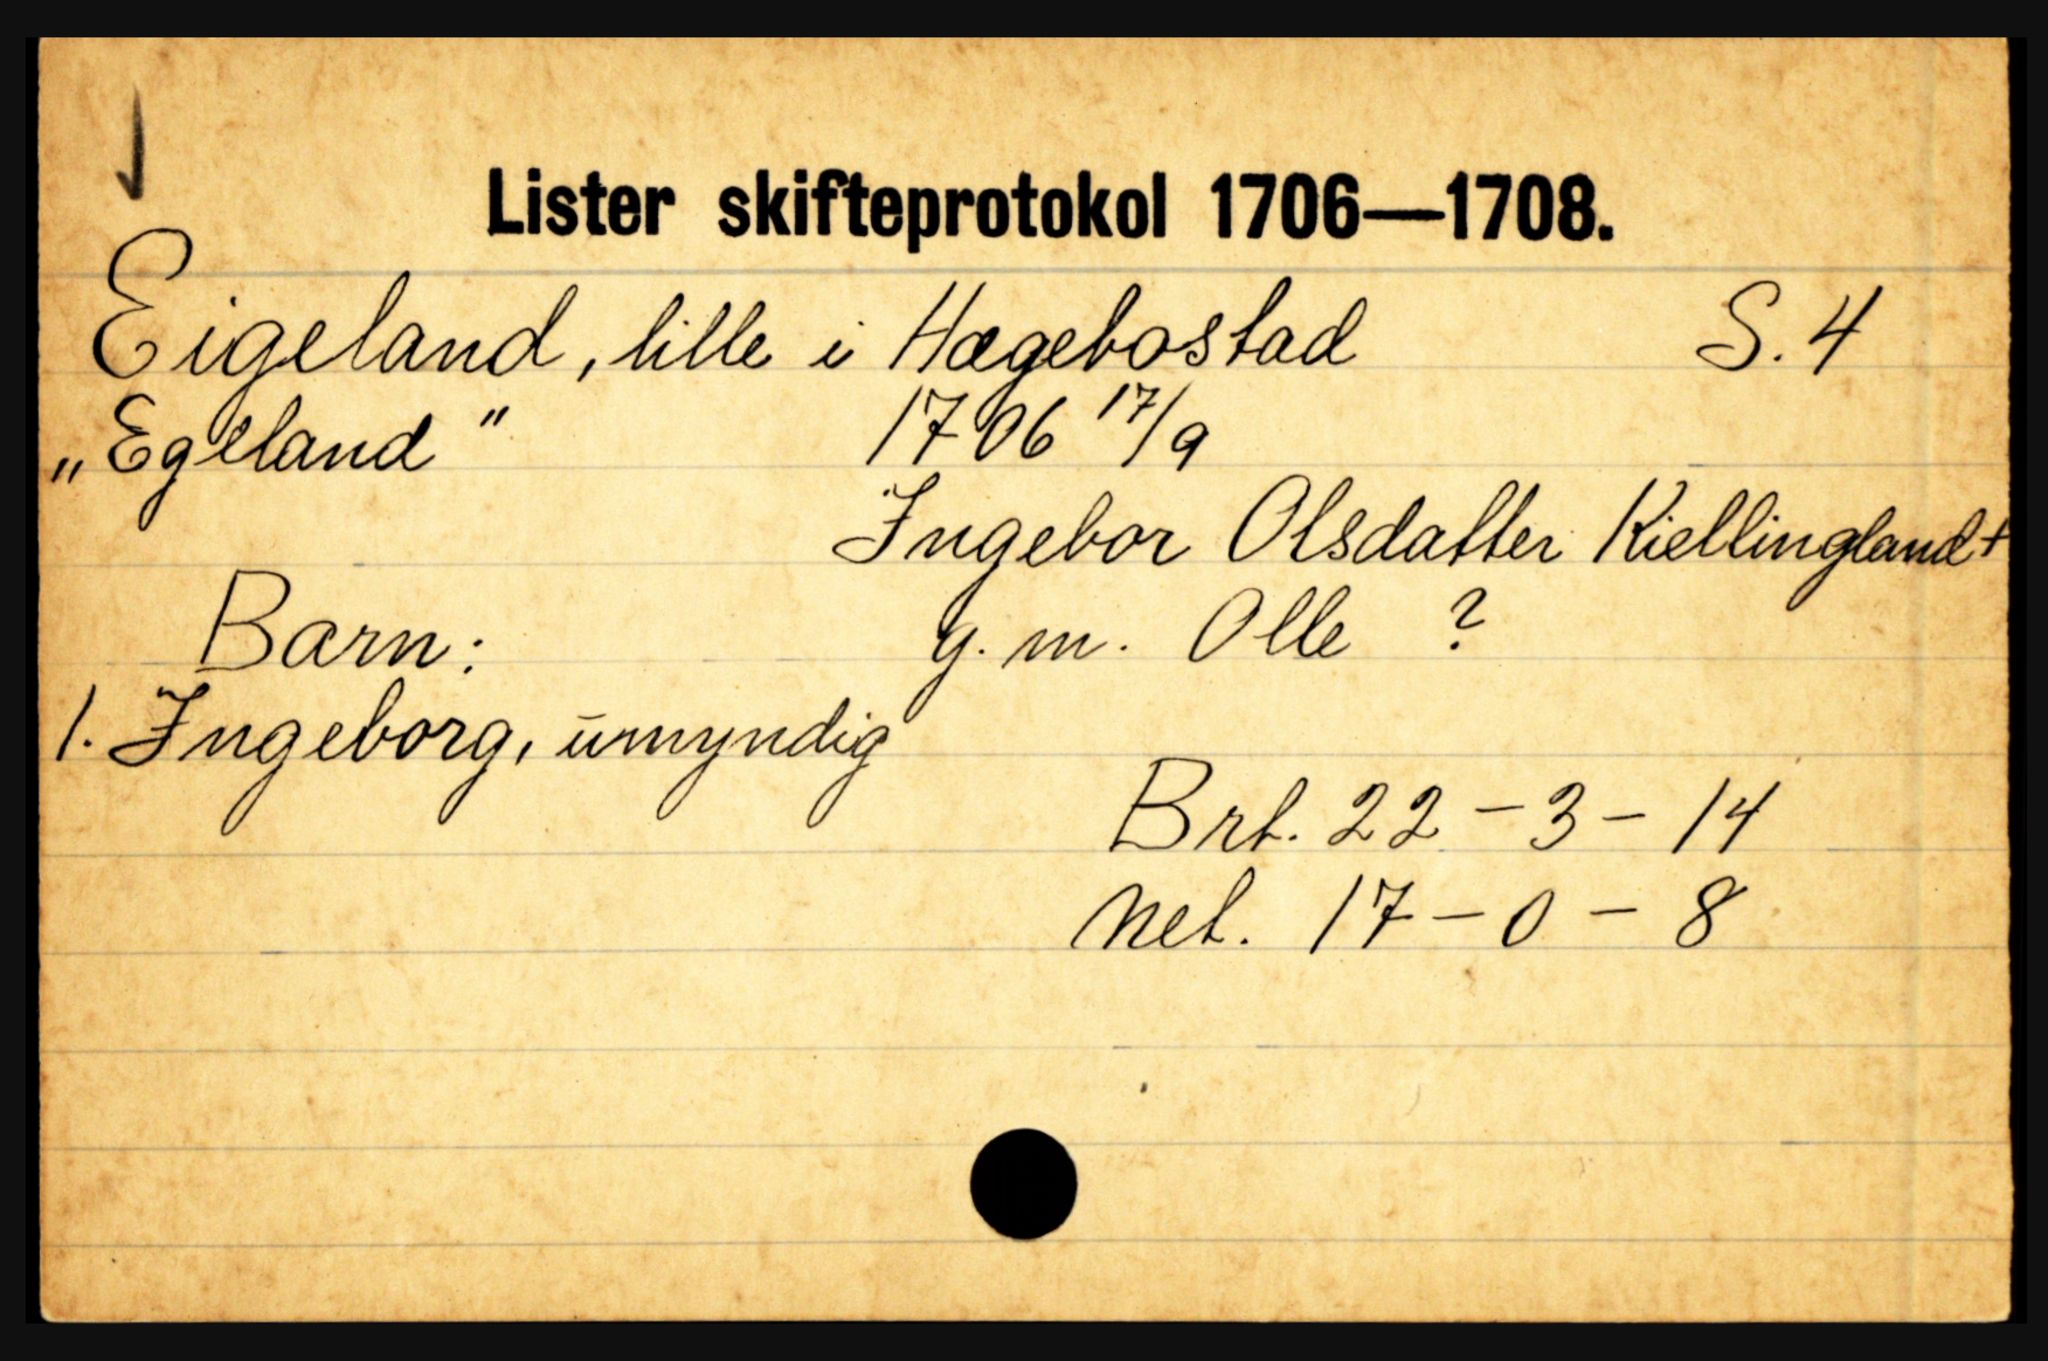 Lister skifteprotokol 1706—1708.
Eigeland, lille i Hægebostad S. 4
„Egeland" 1706 17/9
Ingebor Olsdatter Kiellingland +
Barn: g. m. Olle ?
1. Ingeborg, umyndig
Brt. 22 - 3 - 14
Net. 17 - 0 - 8